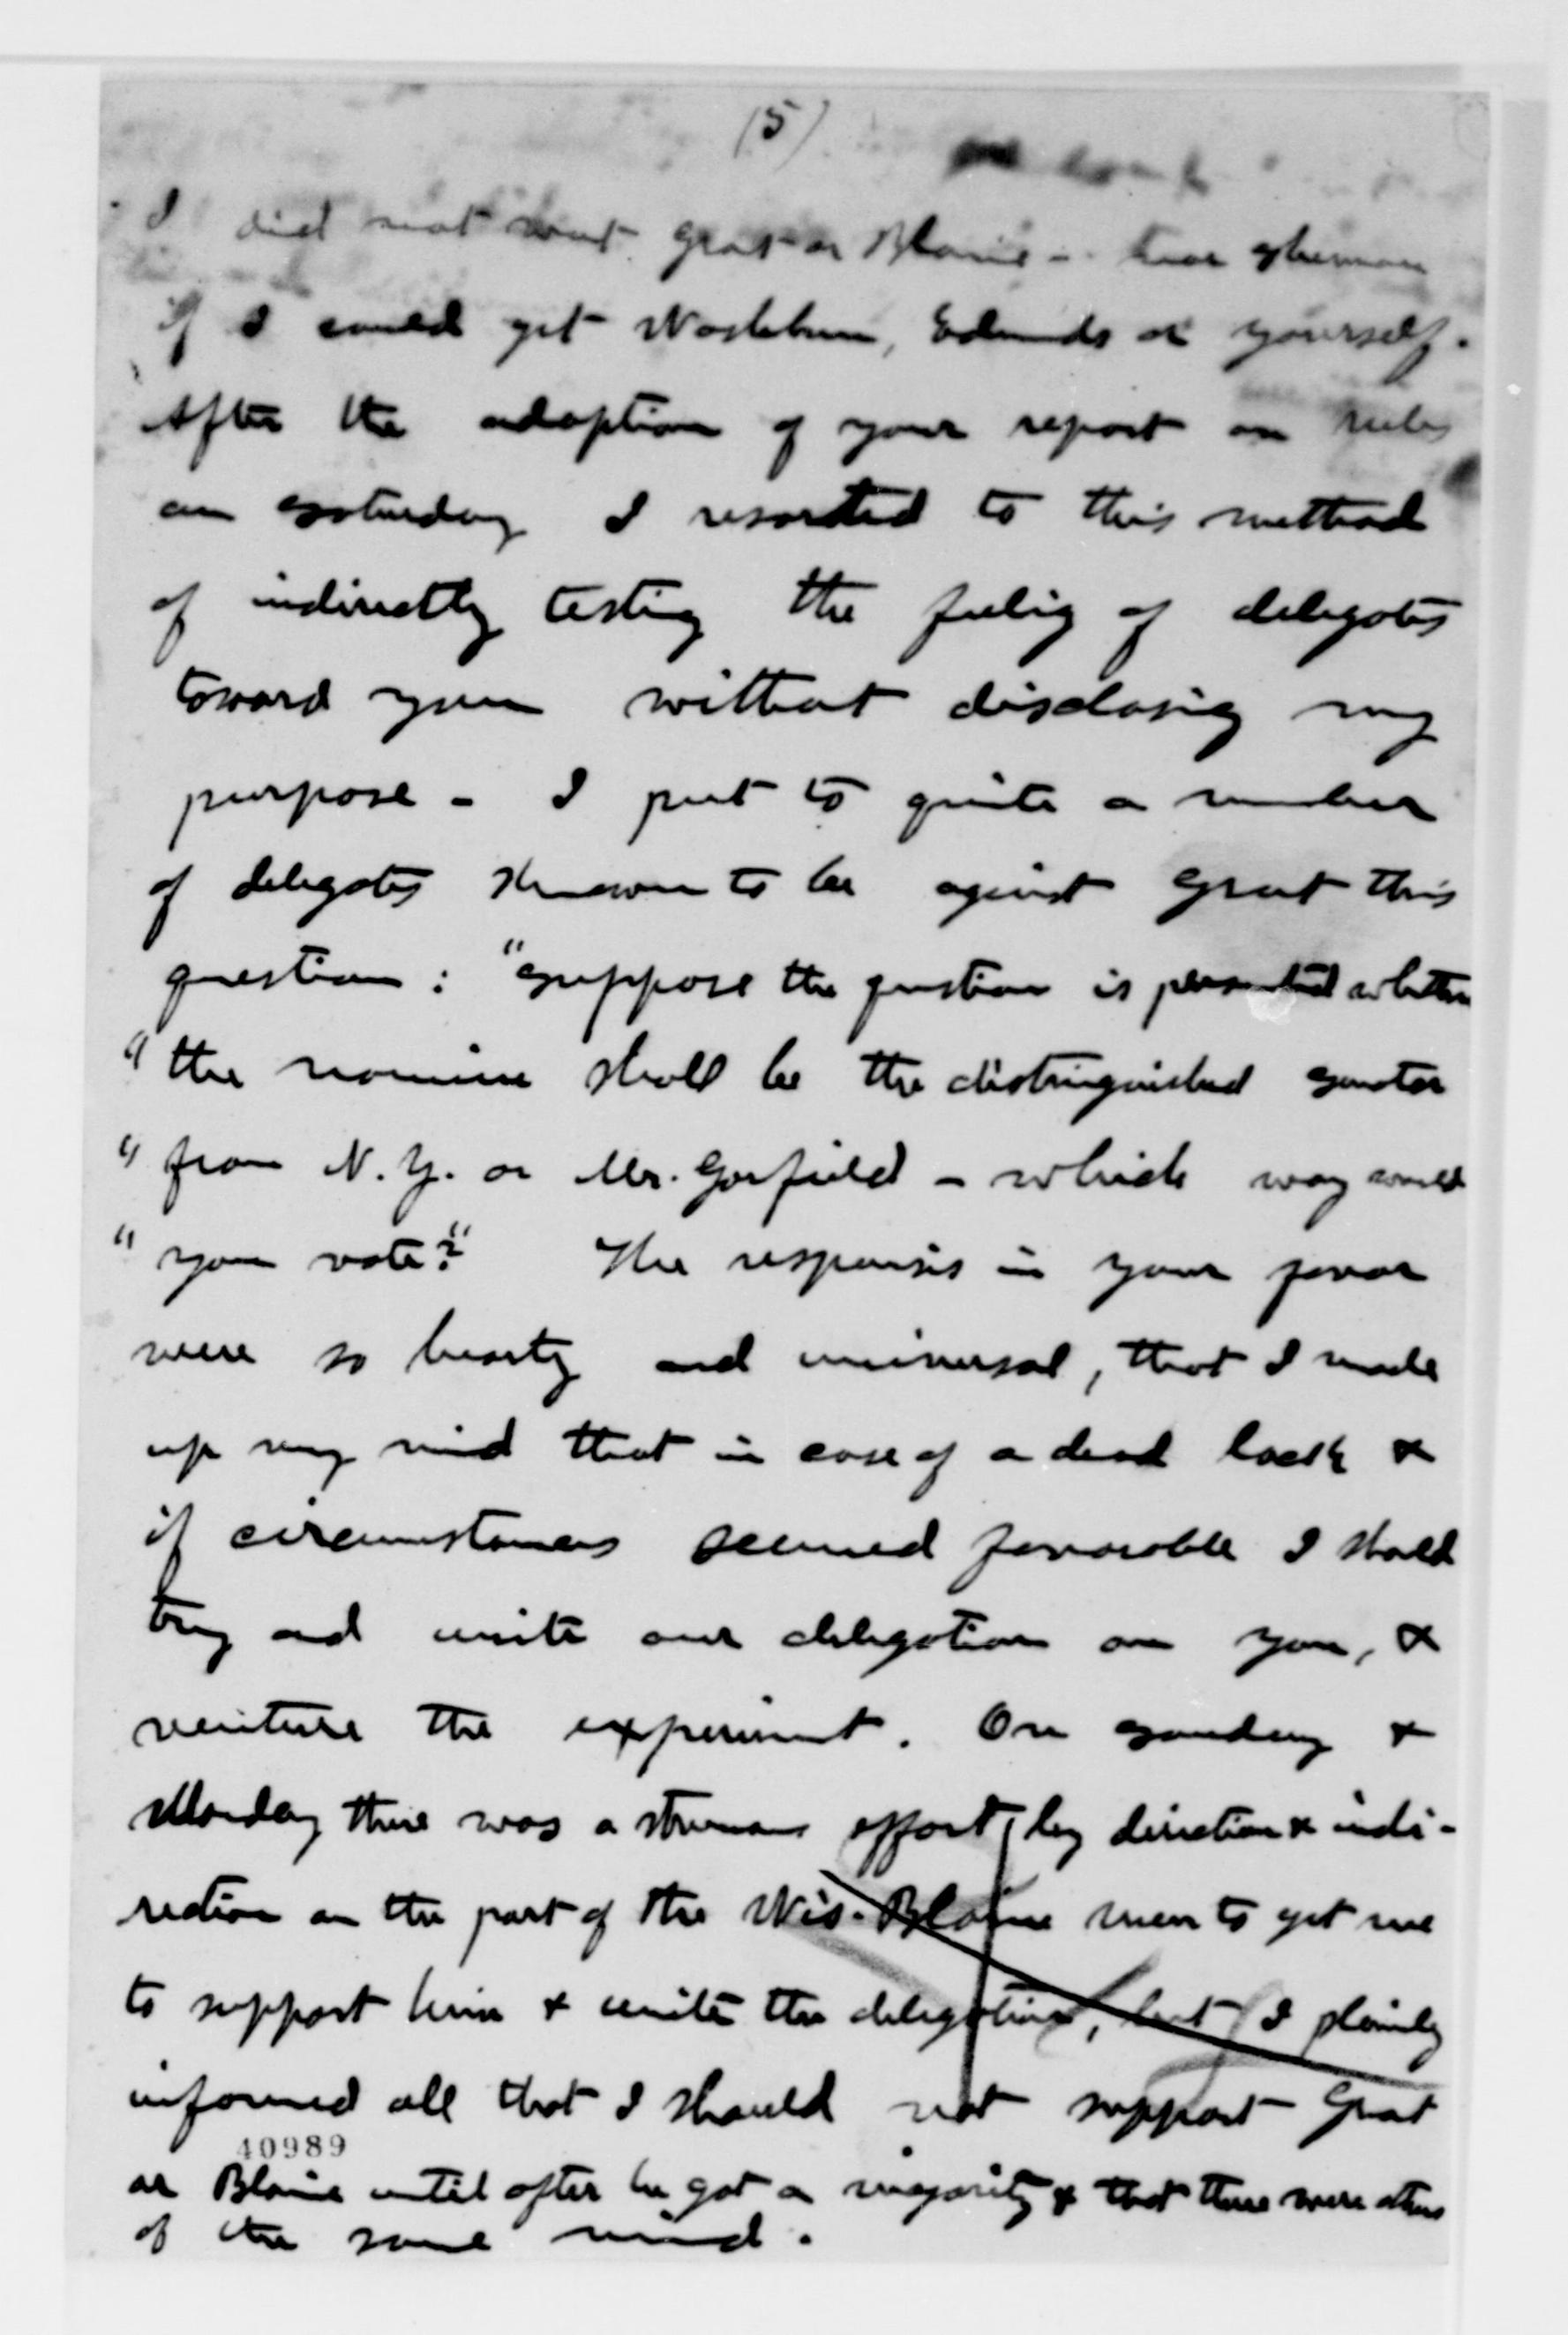 (5)
I did not want Grant or Blaine - nor Sherman
if I could get Washburn, Edmunds or yourself.
After the adoption of your report on rules
on Saturday I resorted to this method
of indirectly testing the feeling of delegates
toward you without disclosing my
purpose - I put to quite a number
of delegates known to be against Grant this
question : "Suppose the question is presented whether
" the nominee shall be the distinguished Senator
" from N. Y. or Mr. Garfield - which way would
" you vote?" The responses in your favor
were so hearty and universal, that I made
up my mind that in case of a dead lock &
if circumstances seemed favorable I should
try and unite our delegation on you, &
venture the experiment. On Sunday &
Monday there was a strenuous effort by direction & indi-
rection on the part of the Wis. Blaine men to get me
to support him & unite the delegation, but I plainly
informed all that I should not support Grant
40989
or Blaine until after he got a majority & that there were others
of the same mind.